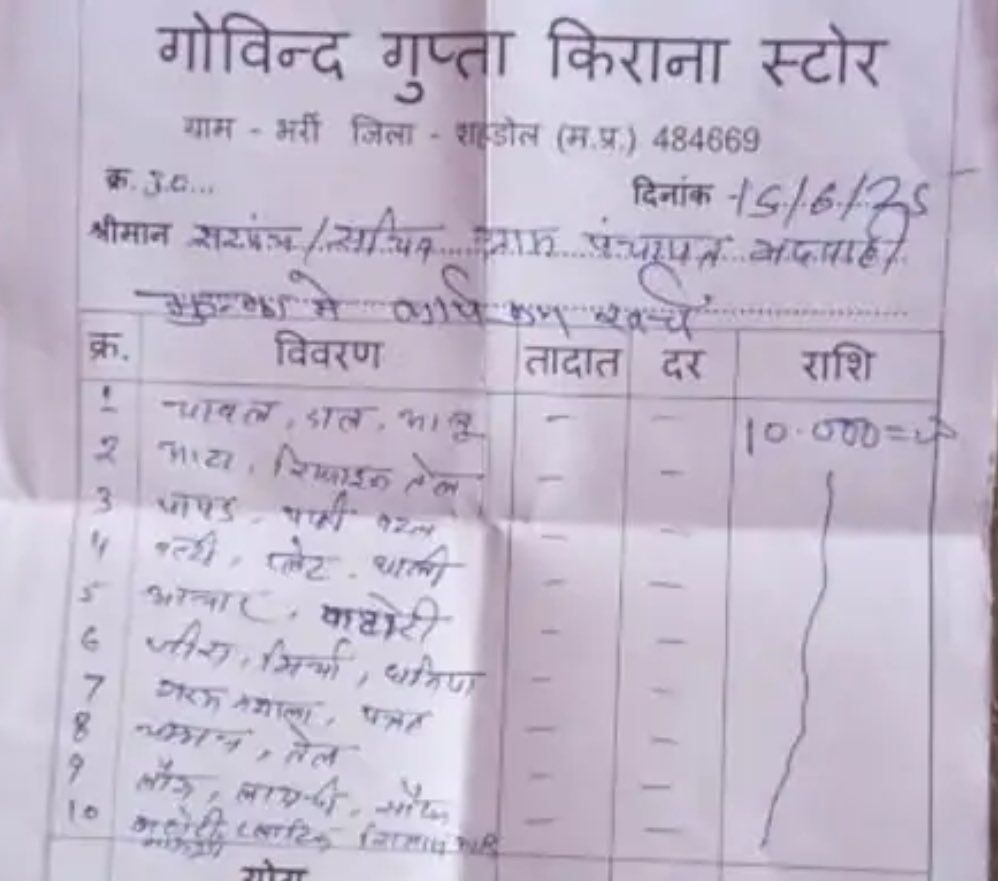 गोविन्द गुप्ता किराना स्टोर
ग्राम - भर्री जिला - शहडोल (म.प्र.) 484669
क्र. 30...
दिनांक 15/6/25
श्रीमान सरपंच/सचिव ग्राम पंचायत भदवाही
में कार्य खर्च
क्र. विवरण तादात दर राशि
1 चावल, दाल, आलू - - 10.000=00
2 आटा, रिफाइन्ड तेल - -
3 पापड़ - -
4 प्लेट, थाली - -
5 आचार, - -
6 जीरा, मिर्चा, धनिया - -
7 गरम मसाला, - -
8 तेल - -
9 लौंग, लायची, सौंफ - -
10 - -
योग